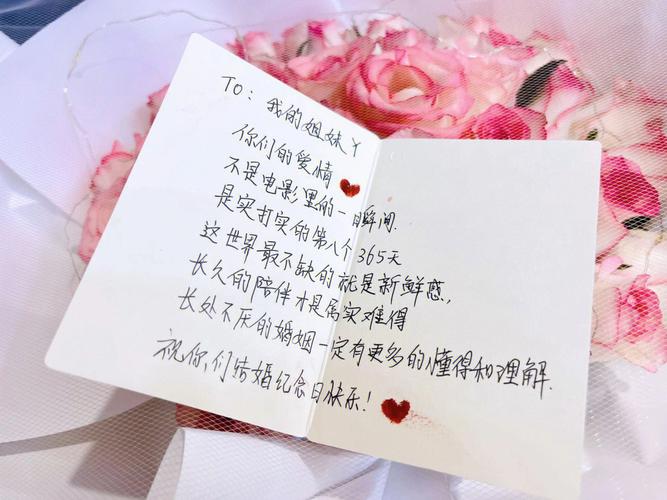 To: 我的姐妹Y
你们的爱情
不是电影里的一瞬间.
是实打实的第八个365天
这世界最不缺的就是新鲜感,
长久的陪伴才是属实难得
长处不厌的婚姻一定有更多的懂得和理解.
祝你们结婚纪念日快乐!